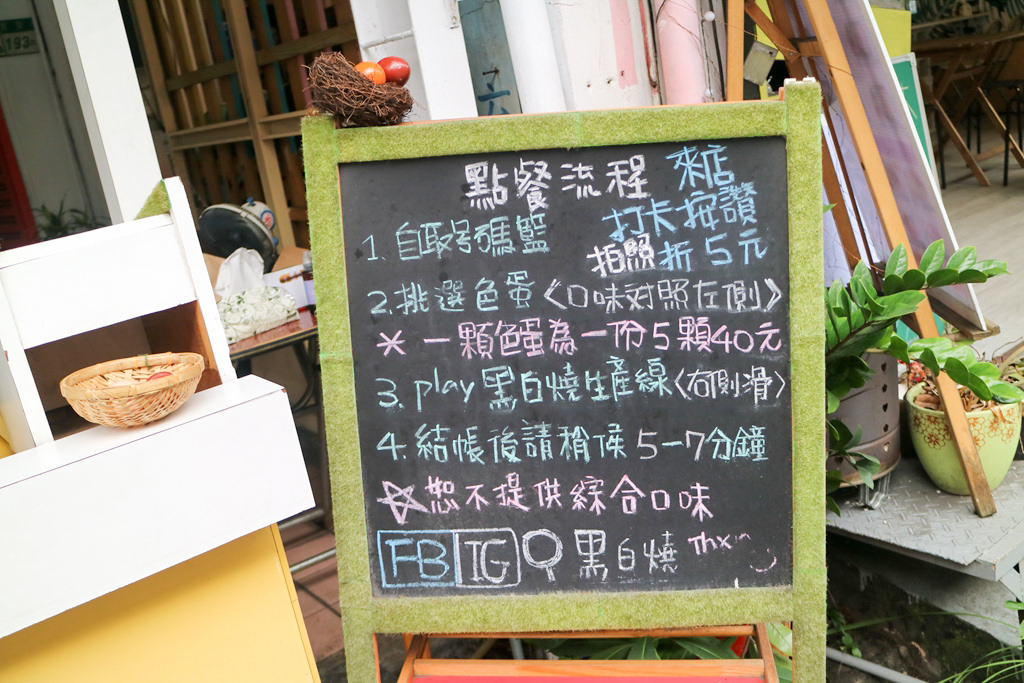 193
點餐流程
來店
打卡按讚
拍照折5元
1.自取號碼籃
2.挑選色蛋《口味対照左側》
*一顆色蛋為一份5顆40元
3.play黑白燒生產線<右側滑>
4.結帳後請稍候5-7分鐘
☆恕不提供綜合口味
FB IG 黑白燒 Thx